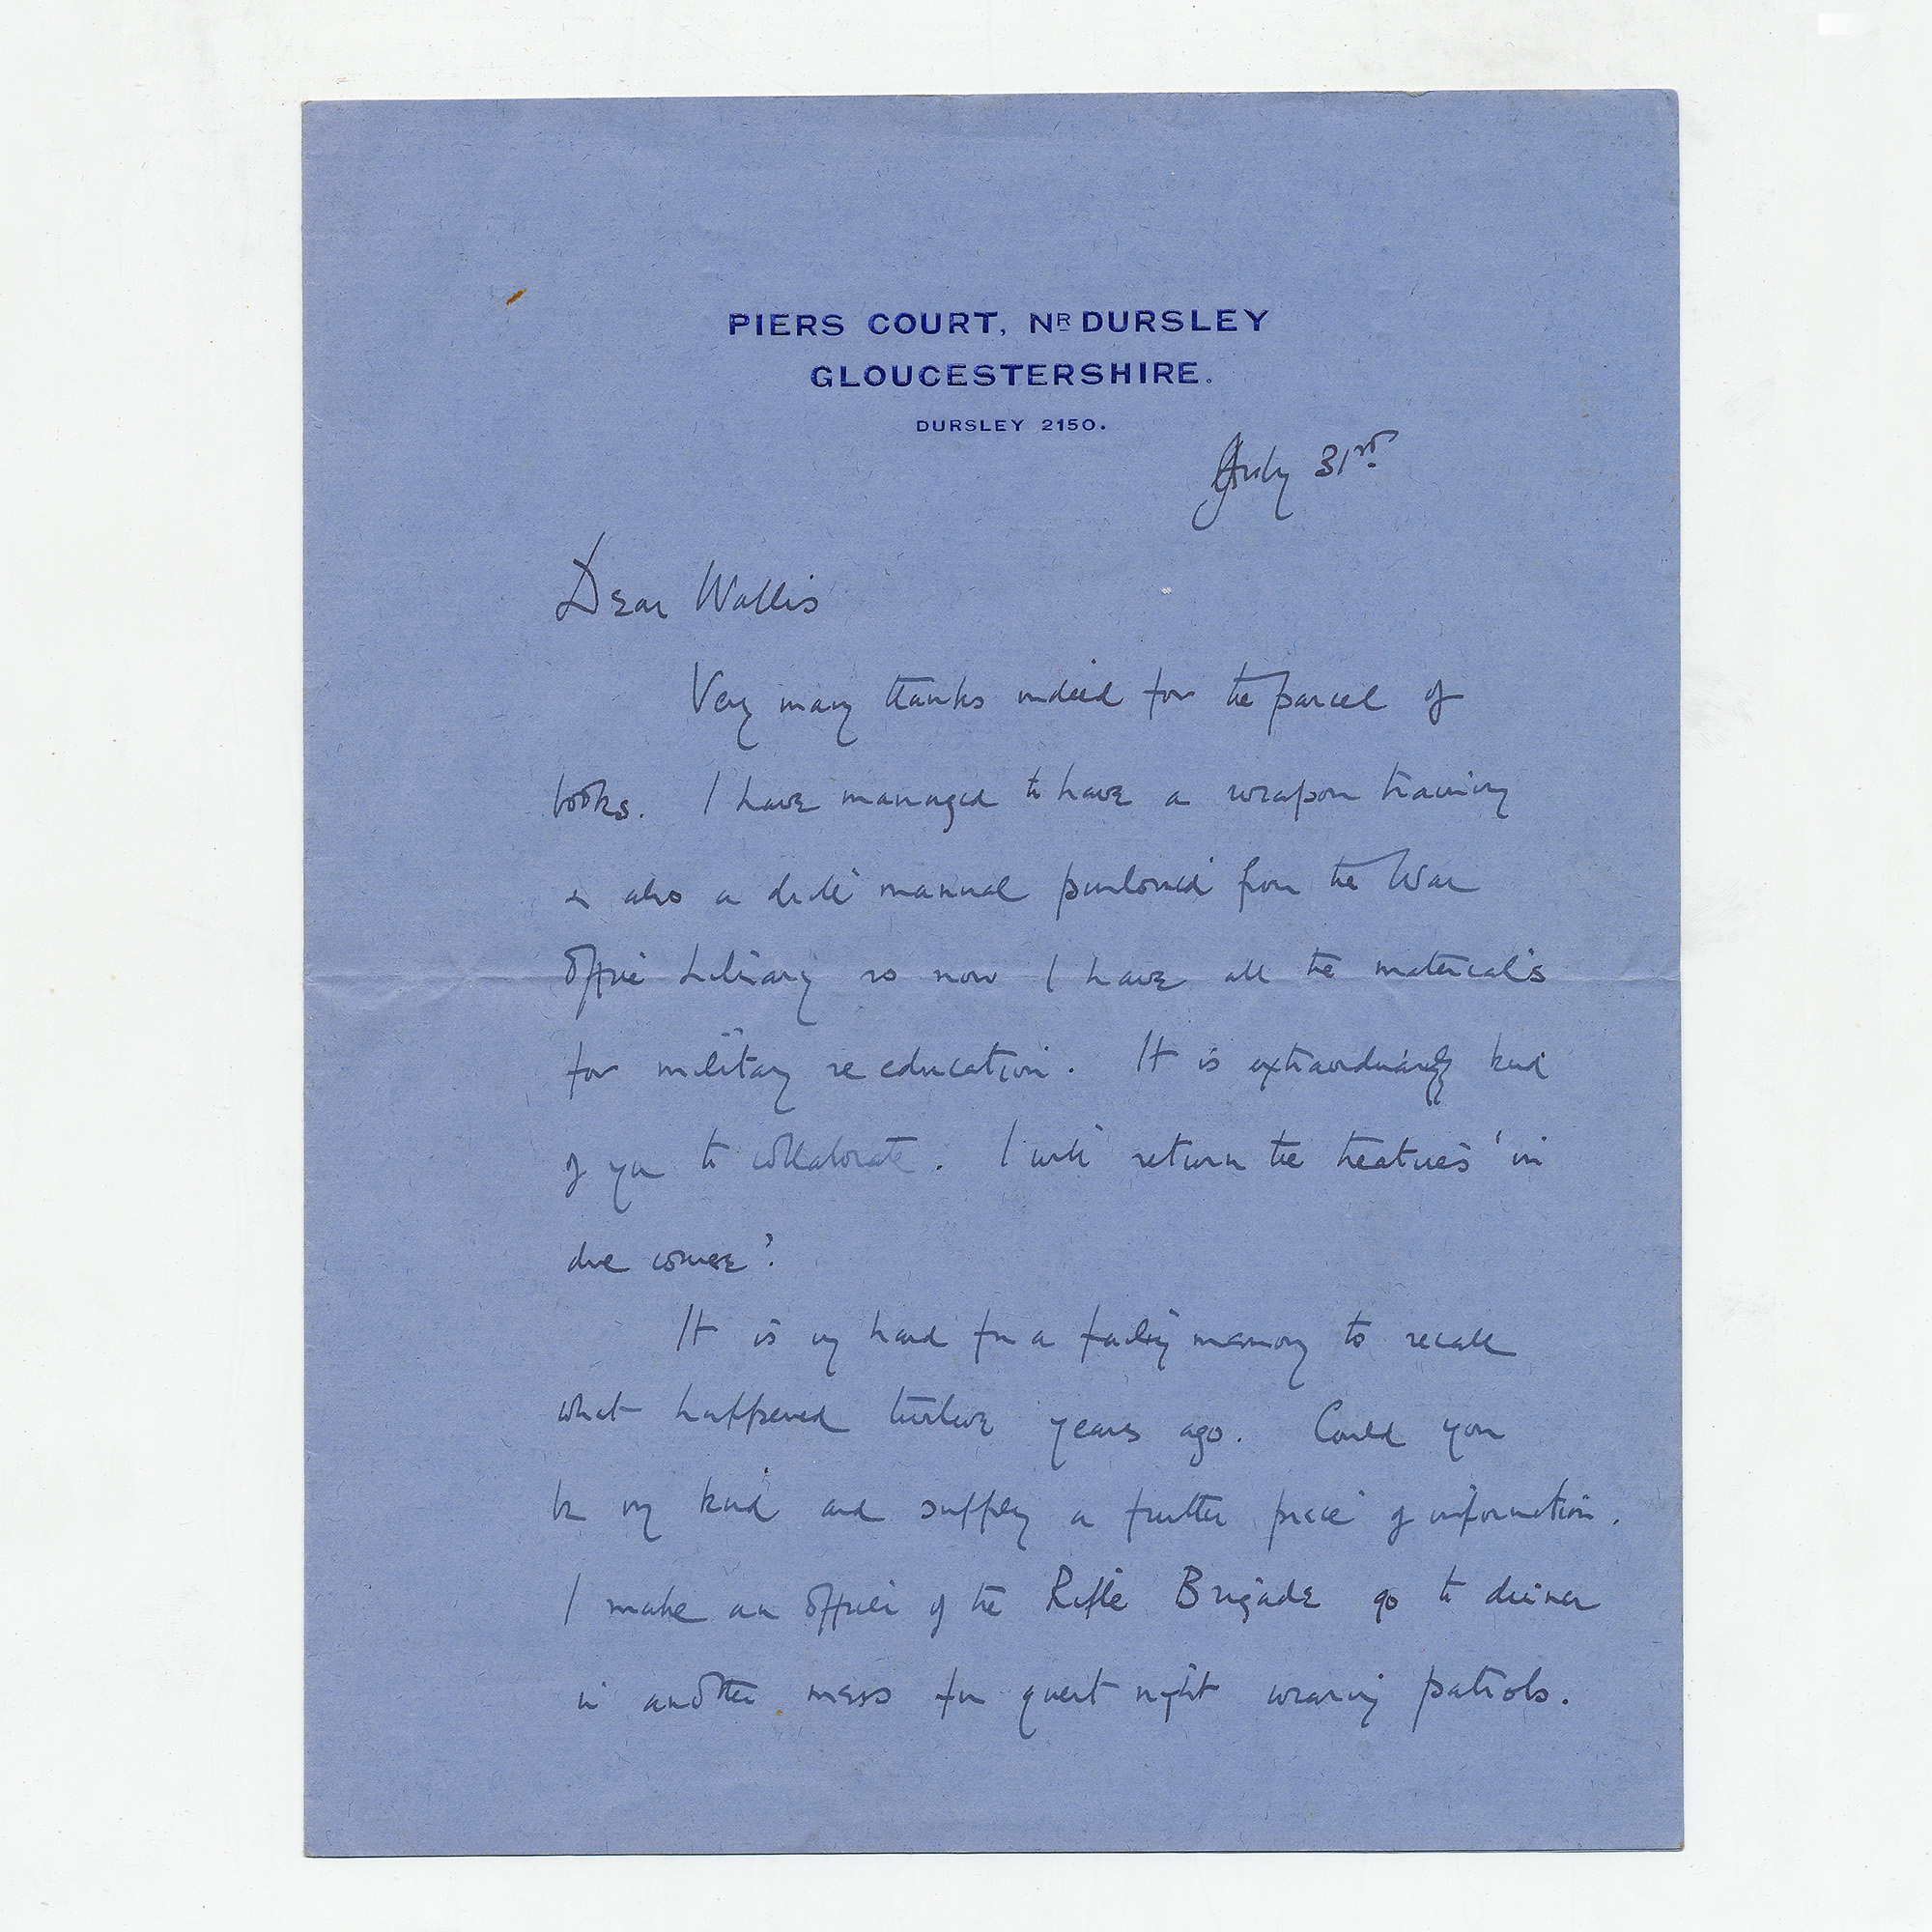 PIERS COURT, NR DURSLEY
GLOUCESTERSHIRE.
DURSLEY 2150.
July 31st
Dear Wallis
Very many thanks indeed for the parcel of
books. I have managed to have a weapon training
& also a drill manual purloined from the War
Office Library so now I have all the materials
for military re education. It is extraordinarily kind
of you to collaborate. I will return the treatises in
due course.
It is very hard for a failing memory to recall
what happened twelve years ago. Could you
be very kind and supply a further piece of information.
I make an officer of the Rifle Brigade go to dinner
in another mess for guest night wearing patrols.